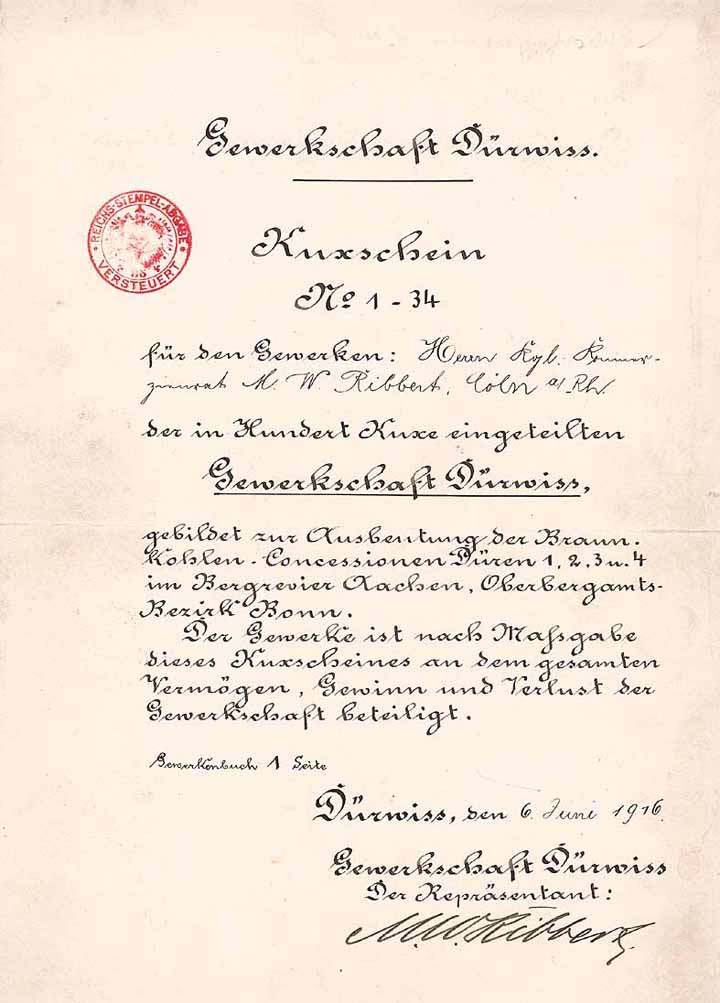 Gewerkschaft Dürwiss.
REICHS-STEMPEL-ABGABE
VERSTEUERT
Kuxschein
No 1 - 34
für den Gewerken: Herrn Kgl. Kommer-
zienrat M. W. Ribbert, Cöln a/Rh.
der in Hundert Kuxe eingeteilten
Gewerkschaft Dürwiss,
gebildet zur Ausbeutung der Braun-
kohlen-Concessionen Düren 1, 2, 3 u. 4
im Bergrevier Aachen, Oberbergamts-
Bezirk Bonn.
Der Gewerke ist nach Maßgabe
dieses Kuxscheines an dem gesamten
Vermögen, Gewinn und Verlust der
Gewerkschaft beteiligt.
Gewerkenbuch 1 Seite
Dürwiss, den 6. Juni 1916.
Gewerkschaft Dürwiss
Der Repräsentant:
M. W. Ribbert